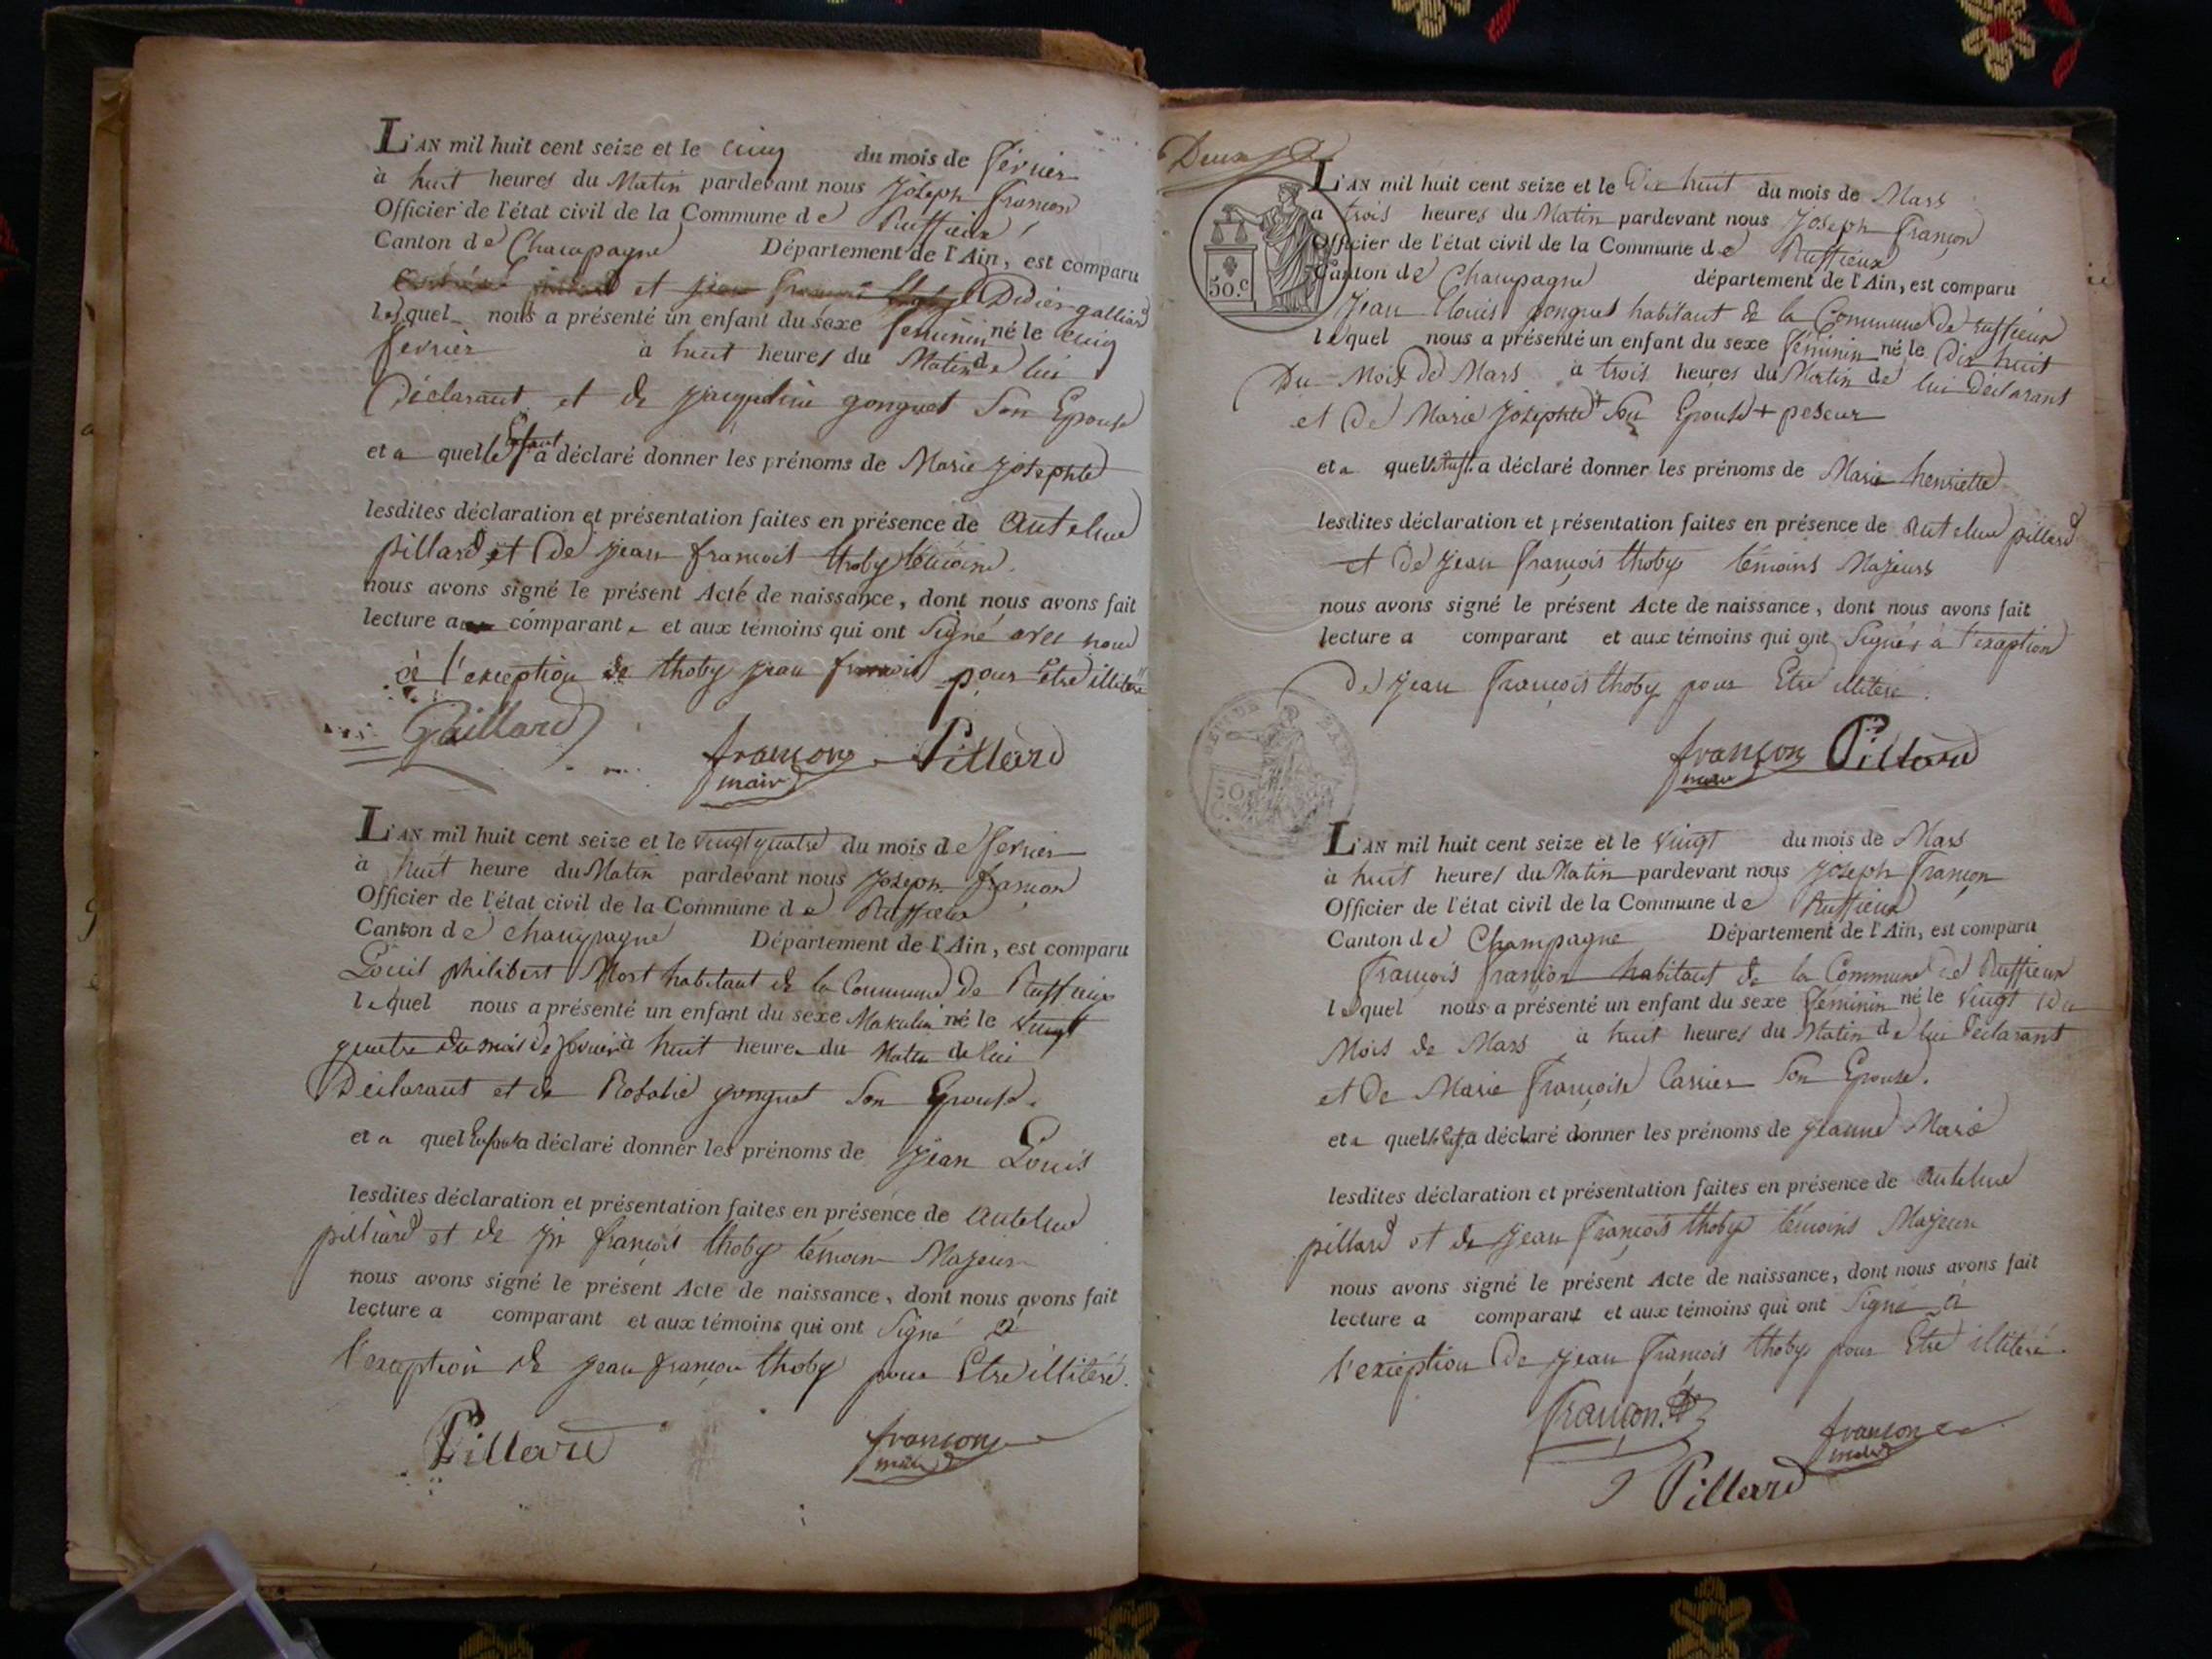 L'AN mil huit cent seize et le Cinq du mois de fevrier
à huit heures du Matin pardevant nous Joseph françon
Officier de l'état civil de la Commune de Ruffieux
Canton de Champagne Département de l'Ain, est comparu
et Didier galliard
lequel nous a présenté un enfant du sexe feminin né le Cinq
fevrier à huit heures du Matin de lui
Déclarant et de jacqueline gonguet Son Epouse
et a quelle Enfant a déclaré donner les prénoms de Marie josephte
lesdites déclaration et présentation faites en présence de Antelme
pillard et De jean francois thoby témoins.
nous avons signé le présent Acte de naissance, dont nous avons fait
lecture au comparant et aux témoins qui ont Signé avec nous
à l'exception de thoby jean francois pour Etre illiteré
Gaillard
françon Pillard
maire
L'AN mil huit cent seize et le vingt quatre du mois de fevrier
à huit heure du Matin pardevant nous Joseph françon
Officier de l'état civil de la Commune de Ruffieux
Canton de Champagne Département de l'Ain, est comparu
Louis philibert Mort habitant de la Commune de Ruffieux
lequel nous a présenté un enfant du sexe Maskulin né le vingt
quatre du mois de fevrier à huit heure du Matin de lui
Déclarant et de Rosalie gonguet Son Epouse.
et a quel Enfant a déclaré donner les prénoms de jean Louis
lesdites déclaration et présentation faites en présence de Antelme
pilliard et de jn françois thoby témoin Majeur
nous avons signé le présent Acte de naissance, dont nous avons fait
lecture a comparant et aux témoins qui ont Signé à
l'exception de jean françois thoby pour Etre illiteré.
Pillard françon
maire
Deux
50.c
L'AN mil huit cent seize et le Dix huit du mois de Mars
à trois heures du Matin pardevant nous Joseph françon
Officier de l'état civil de la Commune de Ruffieux
Canton de Champagne département de l'Ain, est comparu
Jean Louis gonguet habitant de la Commune de Ruffieux
lequel nous a présenté un enfant du sexe féminin né le Dix huit
Du Mois de Mars à trois heures du Matin de lui Déclarant
et De Marie josephte + Son Epouse + peseur
et a quelle Enft. a déclaré donner les prénoms de Marie henriette
lesdites déclaration et présentation faites en présence de Antelme pillard
et De jean françois thoby témoins Majeurs
nous avons signé le présent Acte de naissance, dont nous avons fait
lecture a comparant et aux témoins qui ont Signés à l'exception
De jean françois thoby pour Etre illiteré.
françon Pillard
maire
L'AN mil huit cent seize et le vingt du mois de Mars
à huit heures du Matin pardevant nous Joseph françon
Officier de l'état civil de la Commune de Ruffieux
Canton de Champagne Département de l'Ain, est comparu
françois françon habitant de la Commune de Ruffieux
lequel nous a présenté un enfant du sexe féminin né le vingt du
Mois de Mars à huit heures du Matin de lui Déclarant
et De Marie françoise Carrier Son Epouse.
et a quelle Enft. a déclaré donner les prénoms de jeanne Marie
lesdites déclaration et présentation faites en présence de Antelme
pillard et de jean françois thoby témoins Majeur
nous avons signé le présent Acte de naissance, dont nous avons fait
lecture a comparant et aux témoins qui ont Signé à
l'exception De jean francois thoby pour Etre illiteré.
françon.
françon
maire
Pillard